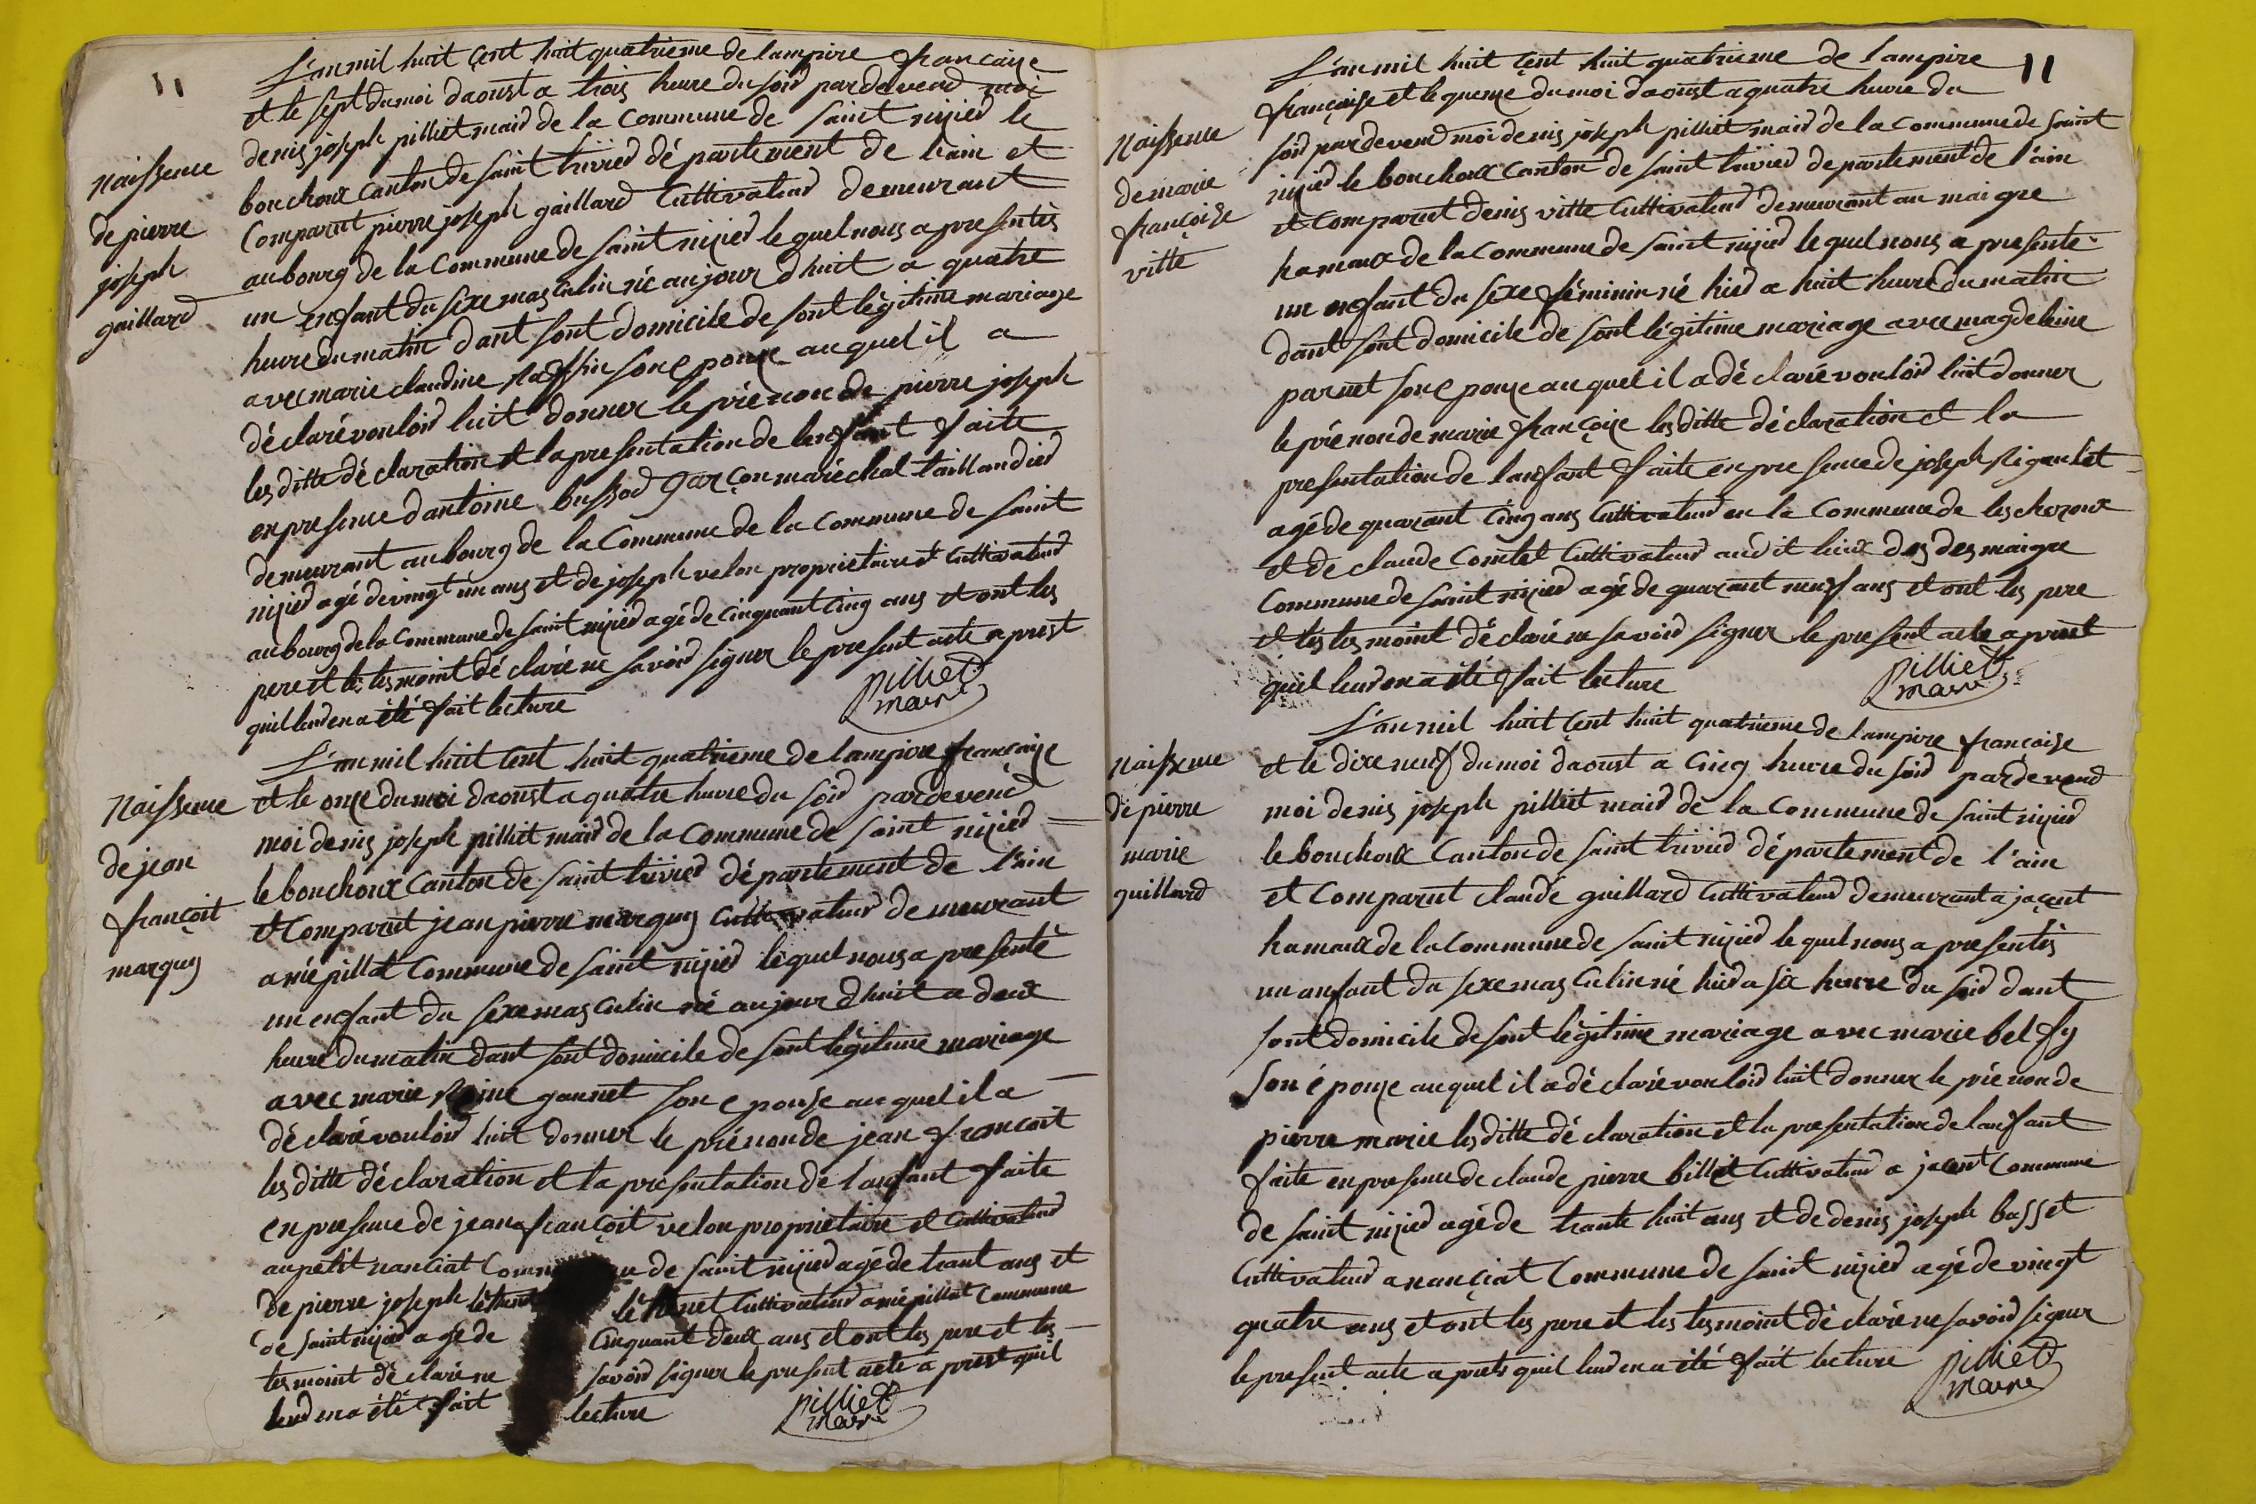 11
L'an mil huit çent huit quatrieme de lampire française
et le sept du moi daoust a trois heure du soid pardevend moi
denis joseph pilliet maid de la Commune de saint nizied le
bouchoux Canton de saint trivied département de l'ain et
Comparut pierre joseph gaillard Cultivateud demeurant
au bourg de la Commune de saint nizied le quel nous a presentés
un enfant du sexe mas Culin né au jour d'huit a quatre
heure du matin dant sont domicile de sont légitime mariage
avec marie claudine raffin son epouze au quel il a
déclaré vouloid luit donner le prénon de pierre joseph
les ditte déclaration et la presentation de lenfant faite
en presence dantoine bussod garçon maréchal taillandied
demeurant au bourg de la Commune de la Commune de saint
nizied agé de vingt un ans et de joseph velon proprietaire et Cultivateud
au bourg de la Commune de saint nizied agé de Cinquant Cinq ans et ont les
pere et les tesmoint déclaré ne savoid signer le present acte a prest
quil leud en a été fait lecture
pilliet
maire
naissence
de pierre
joseph
gaillard
L'an mil huit Cent huit quatrieme de lampire française
et le onze du moi daoust a quatre heure du soid pardevend
moi denis joseph pilliet maid de la Commune de saint nizied
le bouchoux Canton de saint trivied département de l'ain
et Comparut jean pierre marguy Cultivateud demeurant
a niépillat Commune de saint nizied le quel nous a presenté
un enfant du sexe mas Culin né au jour d'huit a deux
heure du matin dant sont domicile de sont légitime mariage
avec marie reine gonnet son epouse au quel il a
déclaré vouloid luit donner le prénon de jean francoit
les ditte déclaration et la presentation de l'anfant faite
en presence de jean françoit velon proprietaire et Cultivateud
au petit nanciat de saint nizied agé de trant ans et
de pierre joseph Cultivateud a niépillat Commune
de saint nizied agé de Cinquant deux ans et ont les pere et les
tesmoint déclaré ne savoid signer le present acte a prest quil
leud en a été fait lecture
pilliet
maire
naissence
de jean
françoit
marguy
11
L'an mil huit Çent huit quatrieme de lampire
française et le quenze du moi daoust a quatre heure du
soid pardevend moi denis joseph pilliet maid de la Commune de saint
nizied le bouchoux Canton de saint trivied departement de l'ain
et Comparut denis vitte Cultivateud demeurant au maigre
hamaux de la Commune de saint nizied le quel nous a presenté
un enfant du sexe féminin né hied a huit heure du matin
dant sont domicile de sont légitime mariage avec magdeleine
parnet son epouze au quel il a déclaré vouloid luit donner
le prénon de marie françoize les ditte déclaration et la
presentation de l'anfant faite en presence de joseph rigaulet
agé de quarant Cinq ans Cultivateud en la Commune de lescheroux
et de claude Comtet Cultivateud audit lieux des maigre
Commune de saint nizied agé de quarant neuf ans et ont les pere
et les tesmoint déclaré ne savoid signer le present acte a prest
quil leud en a été fait lecture
pilliet
maire
naissence
de marie
françoize
vitte
L'an mil huit Cent huit quatrieme de lampire françoize
et le dixe neuf du moi daoust a Cinq heure du soid pardevend
moi denis joseph pilliet maid de la Commune de saint nizied
le bouchoux Canton de saint trivied département de l'ain
et Comparut claude guillard Cultivateud demeurant a jaçent
hamaux de la Commune de saint nizied le quel nous a presentés
un anfant du sexe mas Culin né hied a six heure du soid dant
sont domicile de sont légitime mariage avec marie bel fy
son épouze au quel il a déclaré vouloid luit donner le prénon de
pierre marie les ditte déclaration et la presentation de lanfant
faite en presence de claude pierre billet Cultivateud a jacent Commune
de saint nizied agé de trante huit ans et de denis joseph basset
Cultivateud a nançiat Commune de saint nizied agé de vingt
quatre ans et ont les pere et les tesmoint déclaré ne savoid signer
le present acte a prets quil leud en a été fait lecture
pilliet
maire
naissence
de pierre
marie
guillard